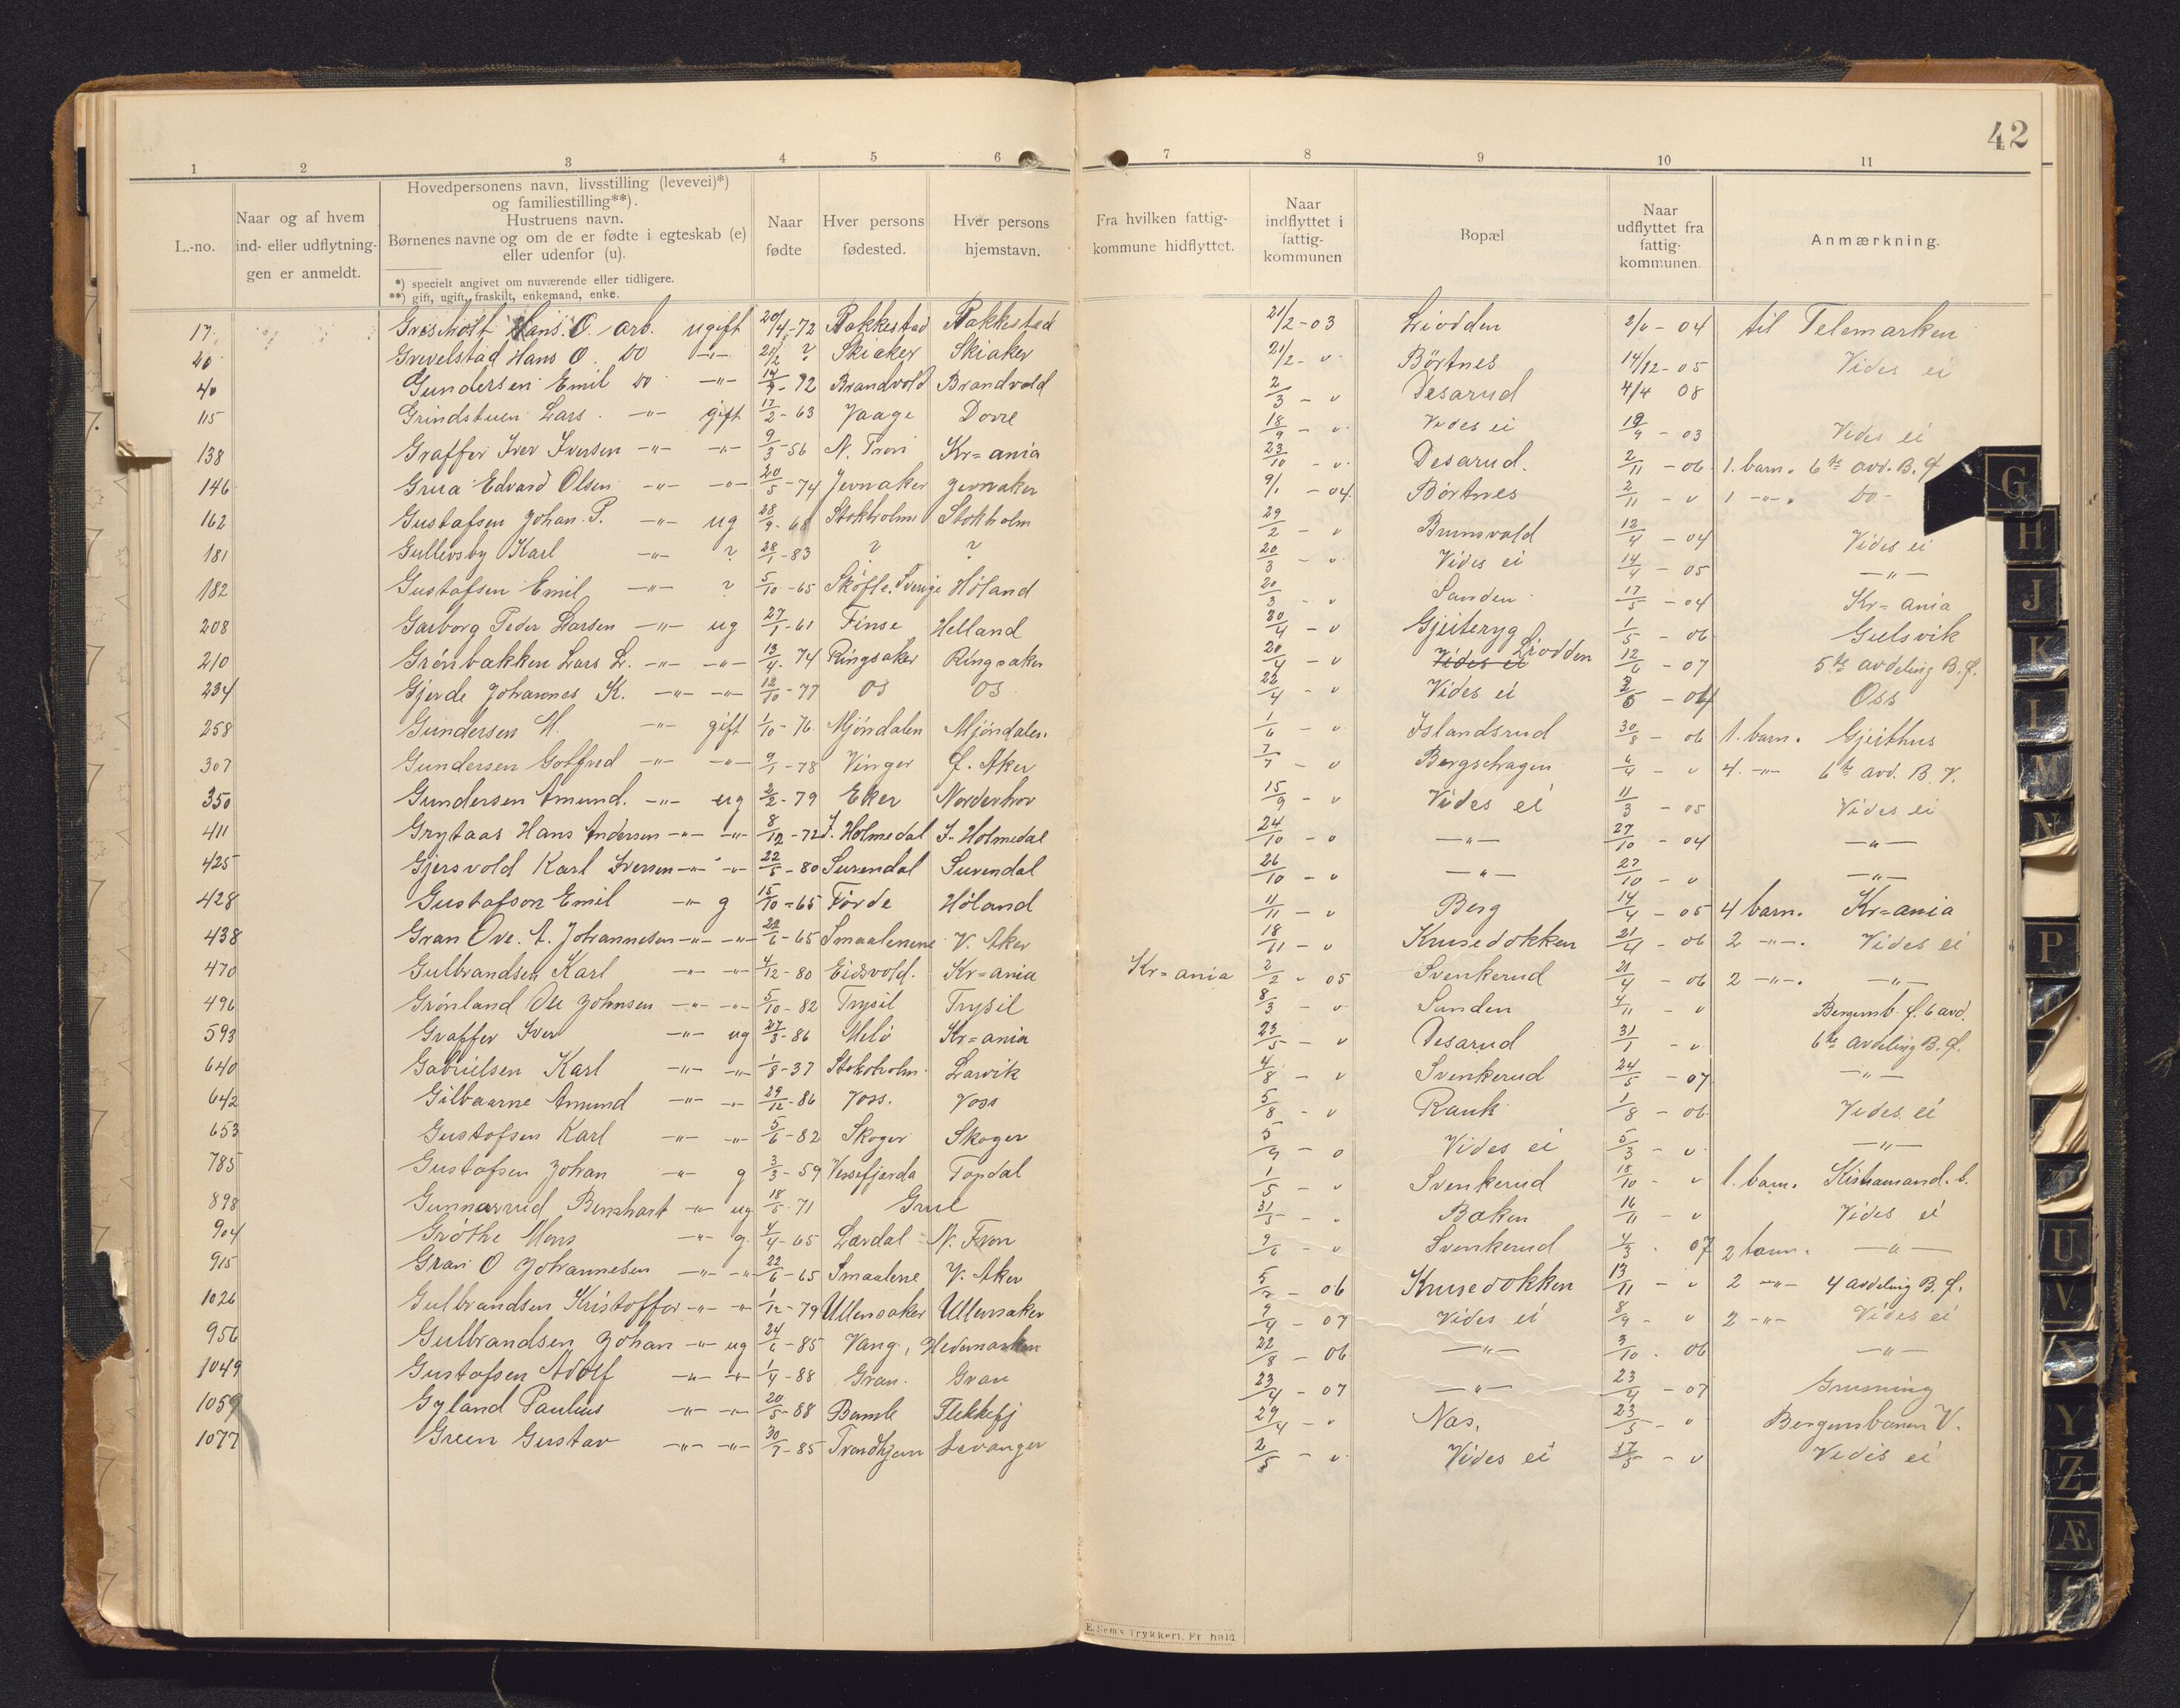 42
1 2 3 4 5 6 7 8 9 10 11
L.-no.
Naar og af hvem
ind- eller udflytnin-
gen er anmeldt.
Hovedpersonens navn, livsstilling (levevei)*)
og familiestilling**).
Hustruens navn.
Børnenes navne og om de er fødte i egteskab (e)
eller udenfor (u).
*) specielt angivet om nuværende eller tidligere.
**) gift, ugift, fraskilt, enkemand, enke.
Naar
fødte
Hver persons
fødested.
Hver persons
hjemstavn.
Fra hvilken fattig-
kommune hidflyttet.
Naar
indflyttet i
fattig-
kommunen
Bopæl
Naar
udflyttet fra
fattig-
kommunen.
Anmærkning.
17 Hans O. arb. ugift 20/4-72 Rakkestad Rakkestad 21/2-03 Liodden 2/6-04 til Telemarken
20 Grevelstad Hans O. Do -"- 21/2 ? Skiaker Skiaker 21/2- v. Börtnes 14/12-05 Vides ei
40 Gundersen Emil Do -"- 14/9-72 Brandvold Brandvold 2/3 - v Desarud 4/4 08
115 Grindstuen Lars. -"- gift 17/2-63 Vaage Dovre 18/9 - v. Vides ei 19/9 - 03 Vides ei
138 Graffer Iver Iversen -"- -"- 9/3-56 N. Fron Kr=ania 23/10 - v. Desarud. 2/11 - 06 1. barn. 6te avd. B. f
146 Grua Edvard Olsen -"- -"- 20/5-74 Jevnaker Jevnaker 9/1 - 04. Börtnes 2/11 - v 1 -"-. Do -
162 Gustafsen Johan P. -"- ug 28/9-68 Stokholm Stokholm 29/2 - v Brunsvold 12/4 - 04 Vides ei
181 Gullersby Karl -"- ? 28/1-83 ? ? 20/3 - v. Vides ei 14/4 - 05 -"-
182 Gustafsen Emil -"- ? 5/10-65 Sköfle. Sverige Höland 20/3 - v Sanden 17/5 - 04 Kr=ania
208 Garborg Peder Larsen -"- ug 27/1-61 Finse Helland 30/4 - v Gjeiteryg 1/5 - 06 Gulsvik
210 Grönbakken Lars L. -"- -"- 13/4-74 Ringsaker Ringsaker 20/4 - v Vides ei Liodden 12/6 - 07 5te avdeling B. f.
234 Gjerde Johannes K. -"- -"- 12/10-77 Os Os 22/4 - v Vides ei - 04 Oss
258 Gundersen H. -"- gift 1/10-76 Mjöndalen Mjöndalen. 1/6 - v Islandsrud 30/8 - 06 1. barn. Gjeithus
307 Gundersen Gotfred -"- -"- 9/1-78 Vinger Ö. Aker 7/7 - v Bergshagen 6/4 - v 4. -"- 6te avd. B. V.
350 Gundersen Amund. -"- ug 2/2-79 Eker Norderhov 15/9 - v Vides ei 11/3 - 05 Vides ei
411 Grytaas Hans Andersen -"- -"- 8/12-72 I. Holmedal I. Holmedal 24/10 - v -"- 27/10 - 04 -"-
425 Gjersvold Karl Iversen -"- -"- 22/5-80 Surendal Surendal 26/10 - v -"- 27/10 - v -"-
428 Gustafson Emil -"- g 15/10-65 Förde Höland 11/11 - v Berg 14/4 - 05 4 barn. Kr=ania
438 Gran Ove. A. Johannesen -"- -"- 22/6-65 Smaalenene V. Aker 18/11 - v Krusedokken 21/4 - 06 2 -"-. Vides ei
470 Gulbrandsen Karl -"- -"- 4/12-80 Eidsvold. Kr=ania Kr=ania 2/2 - 05 Svenkerud 21/4 - 06 2 -"-. -"-
496 Grönland Ole Johnsen -"- -"- 5/10-82 Trysil Trysil 8/3 - v Sanden 4/11 - v Bergensb. f. 6 avd.
593 Graffer Iver -"- ug 27/3-86 Melö Kr=ania 23/5 - v Desarud 31/1 - v 6te avdeling B. f.
640 Gabrielsen Karl -"- -"- 1/8-37 Stokholm. Larvik 4/8 - v Svenkerud 24/5 - 07 -"-
642 Gilbaarne Amund -"- -"- 29/12-86 Voss. Voss 5/8 - v Rauk 1/8 - 06 Vides ei
653 Gustafsen Karl -"- -"- 5/6-82 Skoger Skoger 5/9 - v Vides ei 5/3 - v. -"-
785 Gustafsen Johan -"- g 3/3-59 Topdal 1/5 - v Svenkerud 18/10 - v 1. barn. Kistiansand. b.
898 Gunnarrud Bernhart -"- ug 18/5-71 Grue 31/5 - v Baken 16/11 - v Vides ei
904 Gröthe Mons -"- g. 4/4-65 Lærdal N. Fron 9/6 - v Svenkerud 4/3 - 07 2 barn. -"-
915 Gran O Johannesen -"- -"- 22/6-65 Smaalene V. Aker 5/2 - 06 Krusedokken 13/11 - v 2 -"- 4 avdeling B. f.
1026 Gulbrandsen Kristoffer -"- -"- 1/12-79 Ullensaker Ullensaker 9/4 - 07 Vides ei 8/4 - v 2 -"- Vides ei
956 Gulbrandsen Johan -"- ug 24/6-85 Vang, Hedemarken 22/8 - 06 -"- 3/10 - 06 -"-
1049 Gustafsen Adolf -"- -"- 1/4-88 Gran. Gran 23/4 - 07 -"- 23/4 - 07 Grusning
1059 Gyland Paulius -"- -"- 20/5-88 Bamle Flekkefj 29/4 - v Nas. 23/5 - v Bergensbanen V.
1077 Green Gustav -"- -"- 30/7-85 Trondhjem Levanger 2/5 - v. Vides ei 17/5 - v Vides ei
E. Sem's Trykkeri, Fr. hald
G
H
J
K
L
M
N
P
U
V
X
Y
Z
Æ